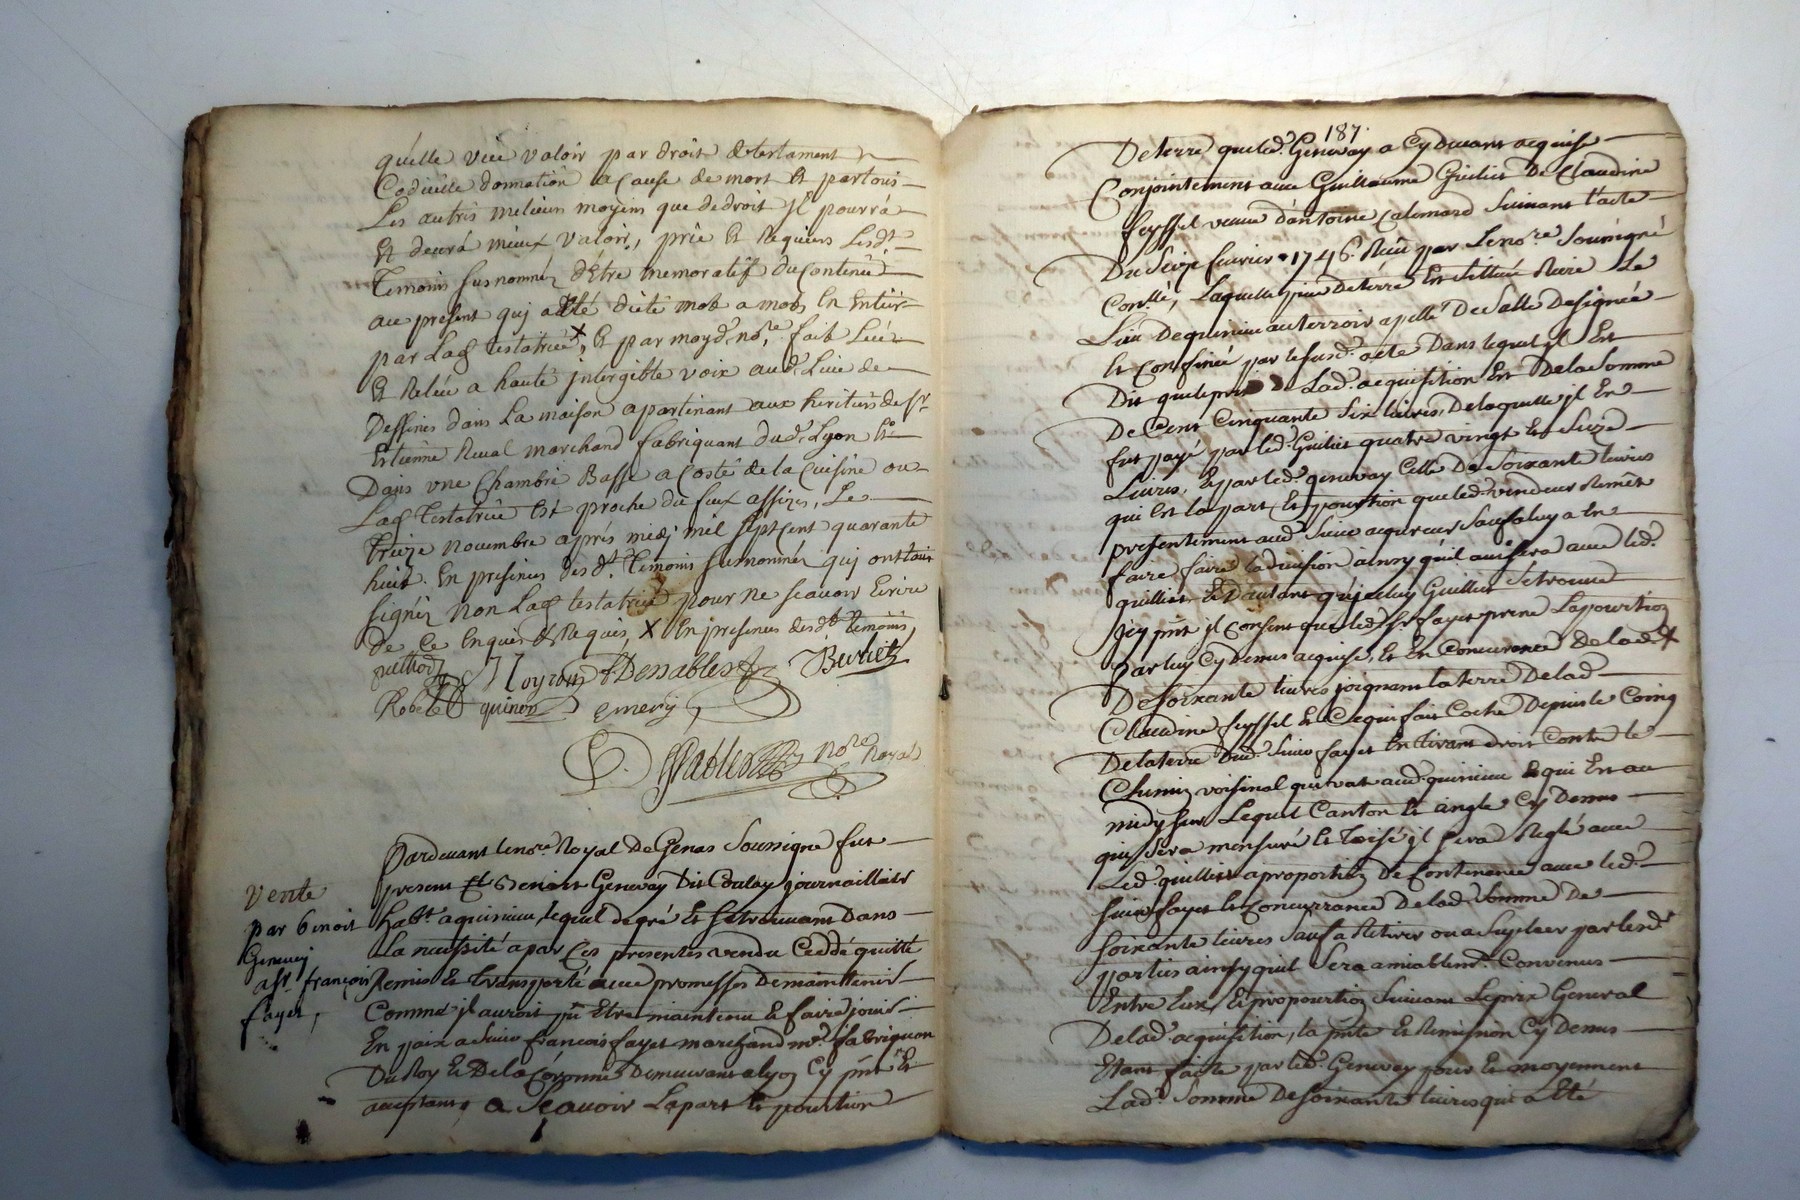 quelle vüe valoir par droit de testament
Codicille donnation a cause de mort Et par tous
Les autres melieurs moyens que de droit jl pourra
Et devrá mieux valoir, prie Et Requiers Lesdt
Temoins susnommez d'être memoratif du Contenu
au present quj a été dicté mot a mot En Entier
par Lad testatrice X, Et par moyd nore, fait Leu
Et Releu a haute jntergible voix aud Lieu de
Dessines dans La maison apartenant aux heritiers de sr
Estienne Rival marchand fabriquant dud Lyon Et
Dans vne Chambre Basse a Costé de la Cuisine ou
Lad Testatrice Est proche du feux assize, Le
treize novembre aprés midj mil sept cent quarante
huit. En presence desdt Temoins susnommez qui ont tous
signéz non Lad testatrice pour ne scavoir Ecrire
de Ce Enquis & Requis, X En presence desdts temoins
Noyron Desnables Buriez
Robelet quinon emery
Sablon Nore Royal
Vente
par Benoit
Genevey
a sr françois
fayet,
Pardevant Le nore Royal De Genas Soussigné fut
present Benoist Genevay Dit Coulay journaillair
habt a quinieu, lequel de gré Et se trouvant Dans
La necessité a par Ces presentes vendu Ceddé quitté
Remis Et transporté avec promesses De maintenir
Comme jl auroit pû Etre maintenu Et faire jouir
En paix a sieur françois fayet marchand mre fabriquan
Du Roy Et De la Coronne Demeurant a Lyon Cy prnt Et
acceptant, a Scavoir La part Et pourtion
187.
De terre que led. Genevay a Cy Devant acquise
Conjointement avec Guillaume Guilliet De Claudine
feyssel veuve d'antoine Calemard Suivant l'acte
Du Seize fevrier 1746. Reçu par Le nore Soussigné
Conllé, Laquelle piece De terre Est Sittuée Riere Le
Lieu De quinieu au terroir apellé De Salle Designée
Et Confinée par le susd. acte Dans lequel jl Est
Dit que le prix De Lad. acquisition Est De la Somme
De Cent Cinquante Six Livres, De laquelle jl En
fut payé par led. Guilliet quatre vingt Et Seize
Livres, Et par led. genevay Celle De Soixante livres
qui Est la part Et pourtion que led. vendeur Remêt
presentement aud. Sieur acquereur Sauf a luy a En
faire faire la division ainsy quil avisera avec led.
quilliet Et D'autant que jceluy Guilliet Se trouve
Jcy prnt jl Consent que led. Sr fayet prene La pourtion
par luy Cy Dessus acquise, Et En Concurance De lad. X
De Soixante livres joignant la terre De lad.
Claudine feyssel Et Ce qui fait Coche Depuis le Coing
De la terre Dud. Sieur fayet En tirant droit Contre le
Chemin voisinal qui vat aud. quinieu Et qui Est au
midy Sur Lequel Canton Et angle Cy Dessus
qui Sera mensuré Et Toisé jl Sera Reglé avec
Led. quilliet a proportion De Contenance avec led.
Sieur fayet Et Concurrance De lad. Somme De
Soixante livres Sauf a Retirer ou a Supleer par lesd.
parties ainsy quil Sera amiablemt. Convenus
Entre Eux, Et proportion Suivant Le prix General
De lad. acquisition, la prnte Et Remission Cy Dessus
Etant faite par led. Genevay pour Et moyennent
Lad. Somme De Soixante livres qui a Eté